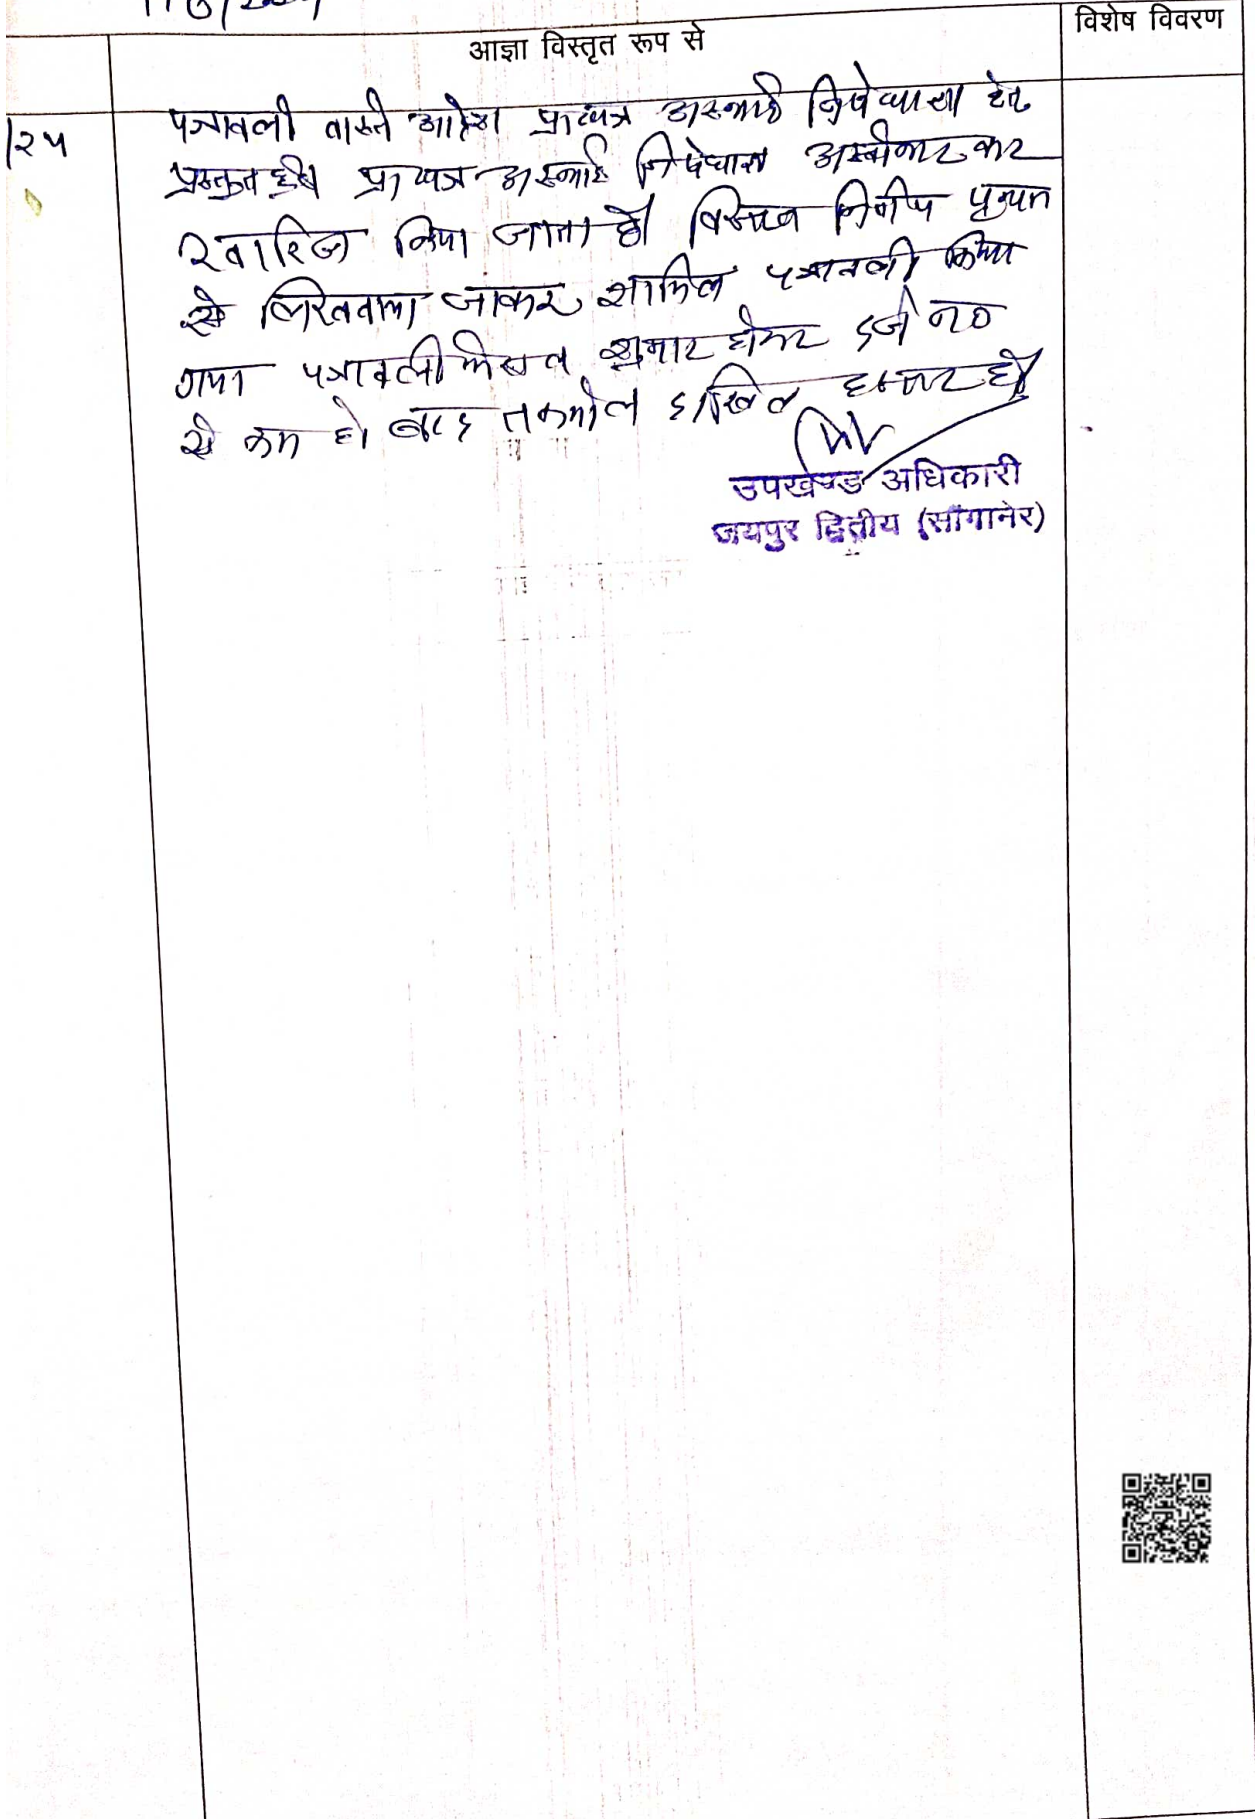 विशेष विवरण
आज्ञा विस्तृत रूप से
पत्रावली वास्ते आदेश प्रा०पत्र अस्थाई निषेधाज्ञा हेतु
|२५
प्रस्तुत हुई। प्रा०पत्र अस्थाई निषेधाज्ञा अस्वीकार कर
खारिज किया जाता है। विस्तृत निर्णय पृथक
से लिखवाया जाकर शामिल पत्रावली किया
गया पत्रावली फैसल शुमार होकर दर्ज न०
से कम हो बाद तकमील दाखिल दफ्तर हो।
उपखण्ड अधिकारी
जयपुर द्वितीय (सांगानेर)